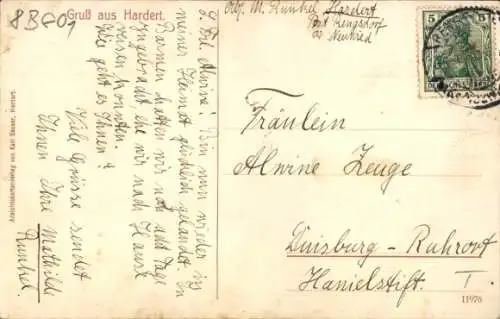 8BG01
Gruß aus Hardert.
Abs. M. Runkel, Hardert
Post Rengsdorf
Neuwied
5
L. Frl. Alwine! Bin nun wieder in
meiner Heimat glücklich gelandet. In
Barmen hatten wir noch acht Tage
zugebracht, ehe wir nach Hause
reisen konnten.
Wie geht es Ihnen?
Viele Grüsse sendet
Ihnen Ihre Mathilde
Runkel.
Fräulein
Alwine Zeuge
Duisburg-Ruhrort
Hanielstift. I.
11976
Ansichtskartenverlag von Karl